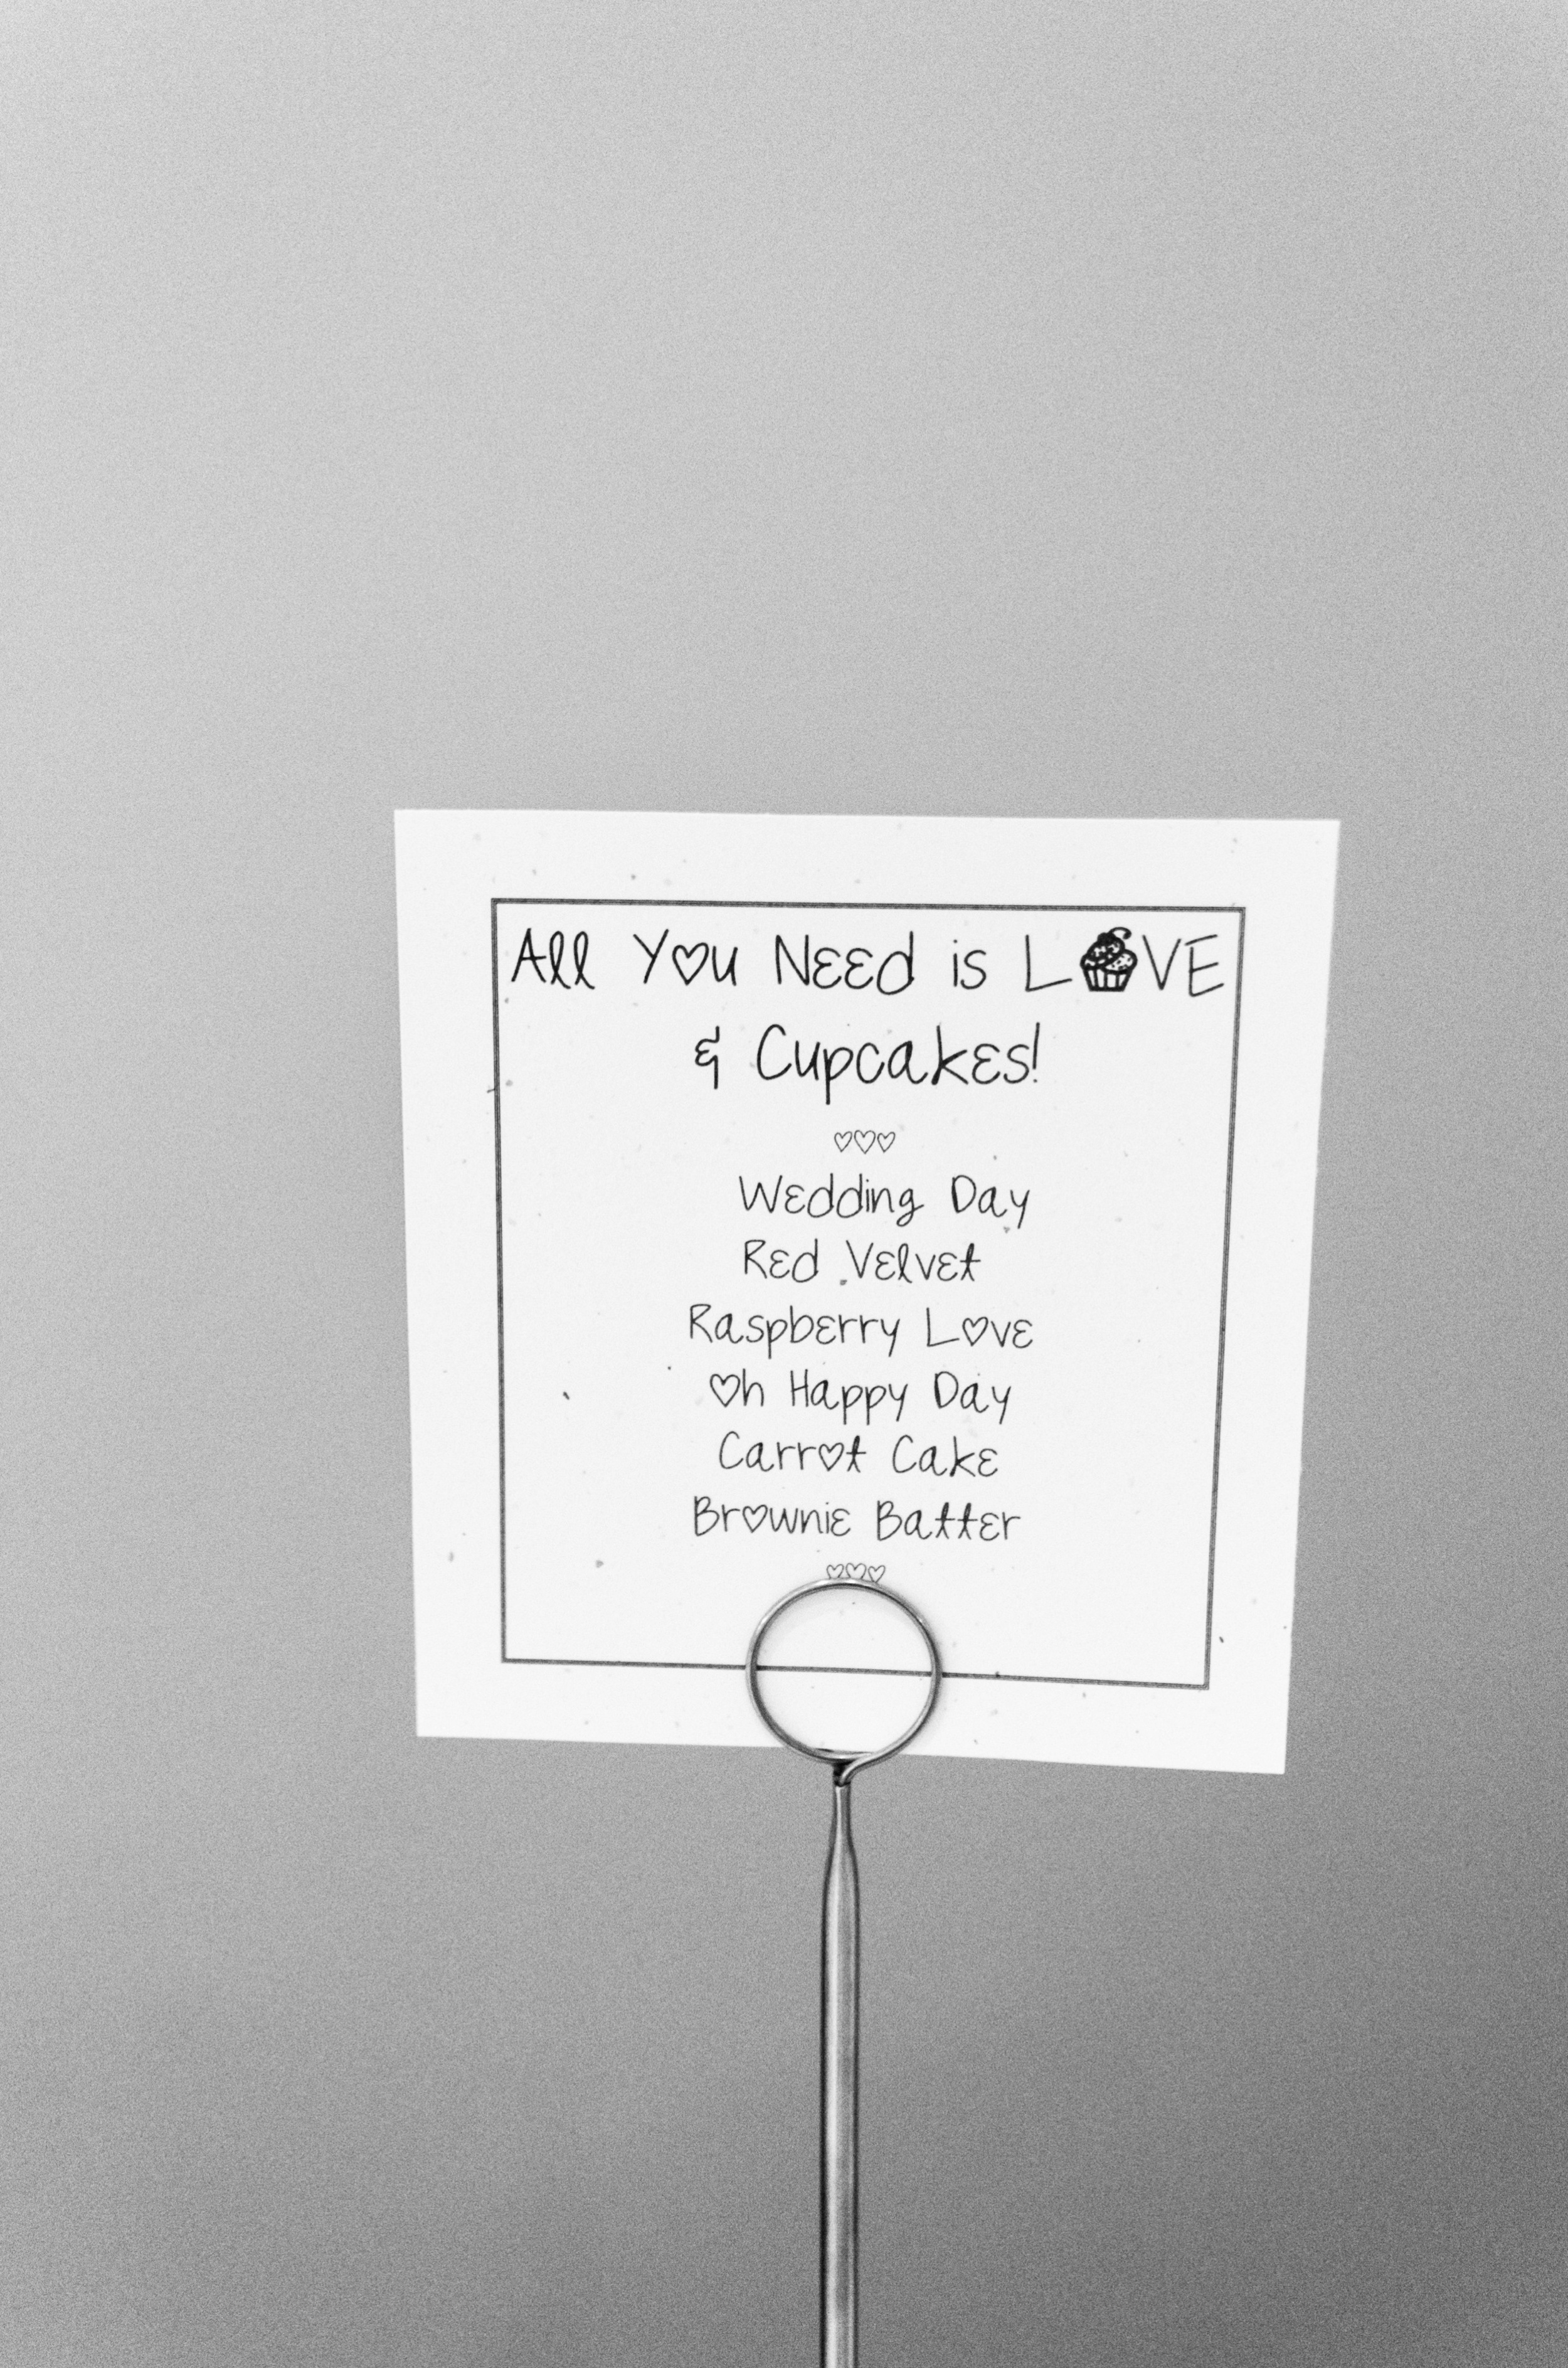 All You Need is LOVE
& Cupcakes!
♡♡♡
Wedding Day
Red Velvet
Raspberry Love
Oh Happy Day
Carrot Cake
Brownie Batter
♡♡♡